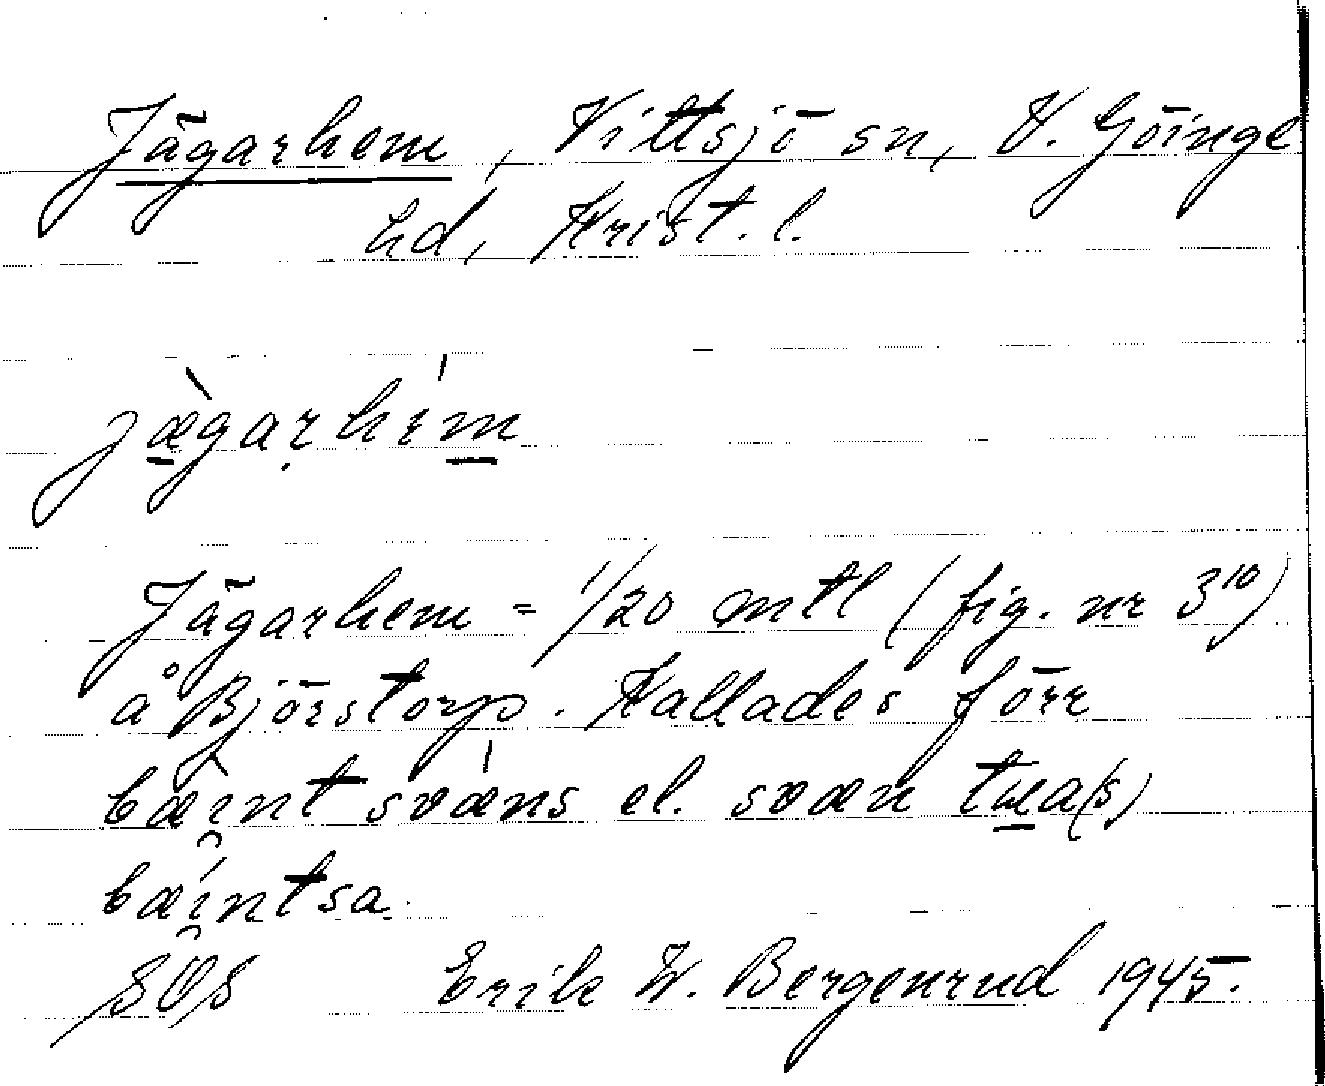 Jägarhem, Vittsjö sn, V. Göinge
hd, Krist. l.
jæ̀garhím
Jägarhem = 1/20 mtl (fig. nr 3¹⁰)
å Björstorp. Kallades förr
bæ̀i̯nt svæ̀ns el. svæn twa(s)
bæi̯ntsa.
SOS Erik W. Bergenrud 1945.